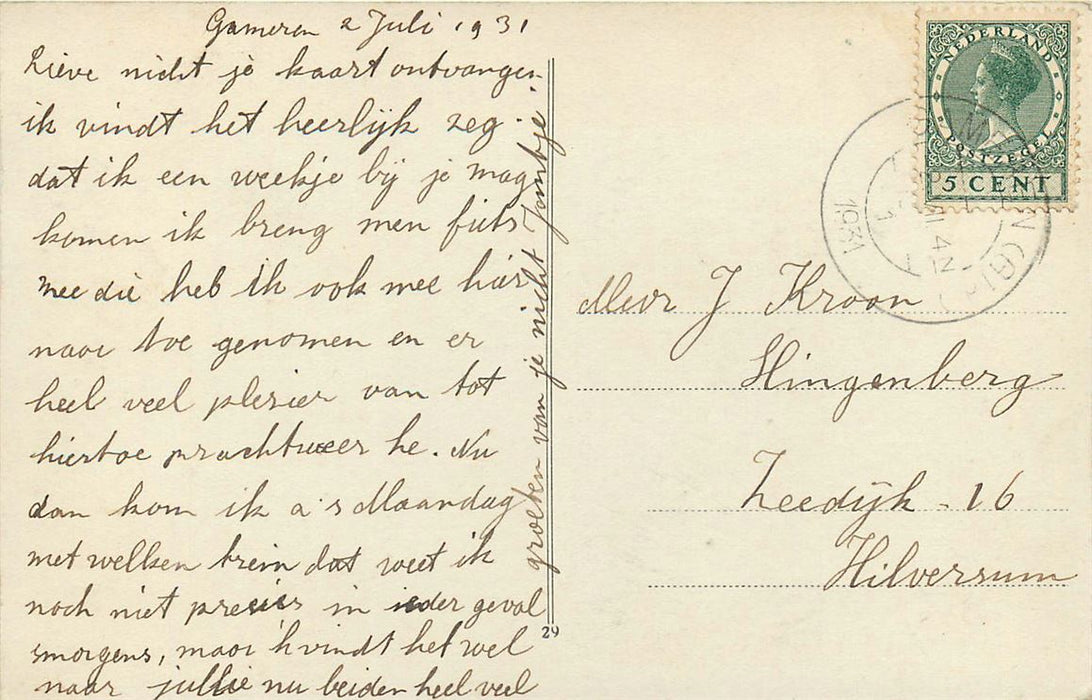 Gameren 2 Juli 1931
Lieve nicht je kaart ontvangen
ik vindt het heerlijk zeg
dat ik een weekje bij je mag
komen ik breng men fiets
mee die heb ik ook mee hier
naar toe genomen en er
heel veel plezier van tot
hiertoe prachtweer he. Nu
dan kom ik a s Maandag
met welken trein dat weet ik
noch niet presies in ieder geval
smorgens, maar 'k vindt het wel
naar jullie nu beiden heel veel
groeten van je nicht Jantje.
29
NEDERLAND
POSTZEGEL
5 CENT
1931
Mevr J Kroon
Hingenberg
Zeedijk - 16
Hilversum